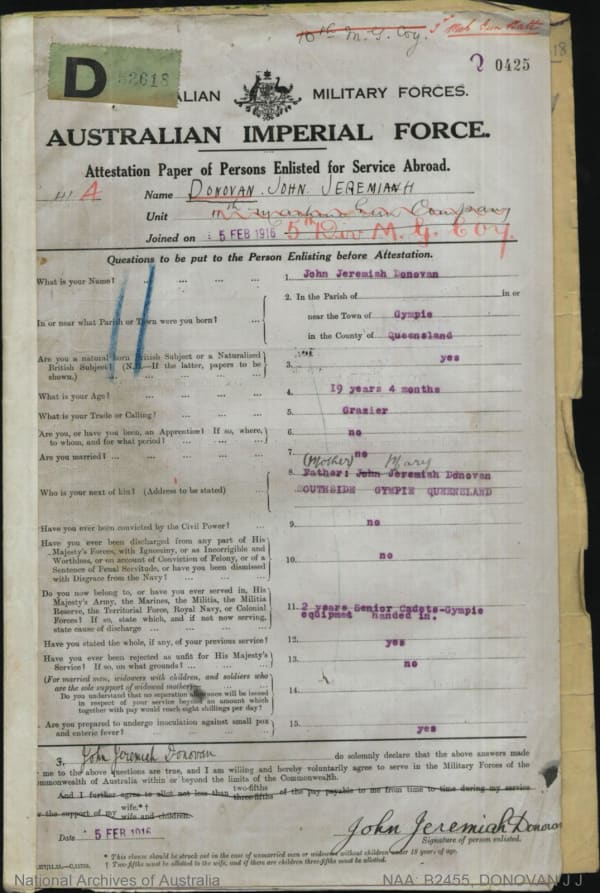 10th M. G. Coy. 3rd Mob Gun Batt
18
D 52618
2 0425
ALIAN MILITARY FORCES.
AUSTRALIAN IMPERIAL FORCE.
Attestation Paper of Persons Enlisted for Service Abroad.
A Name DONOVAN JOHN JEREMIAH
Unit 11th Machine Gun Company
Joined on 5 FEB 1916 5th Div M. G. Coy.
Questions to be put to the Person Enlisting before Attestation.
What is your Name? ... ... ... ... 1. John Jeremiah Donovan
2. In the Parish of in or
In or near what Parish or Town were you born? ... near the Town of Gympie
in the County of Queensland
Are you a natural born British Subject or a Naturalized
British Subject? (N.B.—If the latter, papers to be
shown.) ... ... ... ... 3. yes
What is your Age? ... ... ... ... 4. 19 years 4 months
What is your Trade or Calling? ... ... ... 5. Grazier
Are you, or have you been, an Apprentice? If so, where,
to whom, and for what period? ... ... ... 6. no
Are you married? ... ... ... ... ... 7. no
(Mother) Mary
8. Father: John Jeremiah Donovan
Who is your next of kin? (Address to be stated) ... SOUTHSIDE GYMPIE QUEENSLAND
Have you ever been convicted by the Civil Power? ... 9. no
Have you ever been discharged from any part of His
Majesty's Forces, with Ignominy, or as Incorrigible and
Worthless, or on account of Conviction of Felony, or of a
Sentence of Penal Servitude, or have you been dismissed
with Disgrace from the Navy? ... ... ... 10. no
Do you now belong to, or have you ever served in, His
Majesty's Army, the Marines, the Militia, the Militia
Reserve, the Territorial Force, Royal Navy, or Colonial
Forces? If so, state which, and if not now serving,
state cause of discharge ... ... ... ... 11. 2 years Senior Cadets-Gympie
equipmed handed in.
Have you stated the whole, if any, of your previous service? 12. yes
Have you ever been rejected as unfit for His Majesty's
Service? If so, on what grounds? ... ... ... 13. no
(For married men, widowers with children, and soldiers who
are the sole support of widowed mother—
Do you understand that no separation allowance will be issued
in respect of your service beyond an amount which
together with pay would reach eight shillings per day? 14.
Are you prepared to undergo inoculation against small pox
and enteric fever? ... ... ... ... 15. yes
3. John Jeremiah Donovan do solemnly declare that the above answers made
me to the above questions are true, and I am willing and hereby voluntarily agree to serve in the Military Forces of the
mmonwealth of Australia within or beyond the limits of the Commonwealth.
And I further agree to allot not less than two-fifths three-fifths of the pay payable to me from time to time during my service
the support of my wife.*† wife and children.
Date 5 FEB 1916 John Jeremiah Donovan
Signature of person enlisted.
* This clause should be struck out in the case of unmarried men or widowers without children under 18 years of age.
† Two-fifths must be allotted to the wife, and if there are children three-fifths must be allotted.
National Archives of Australia NAA: B2455, DONOVAN J J